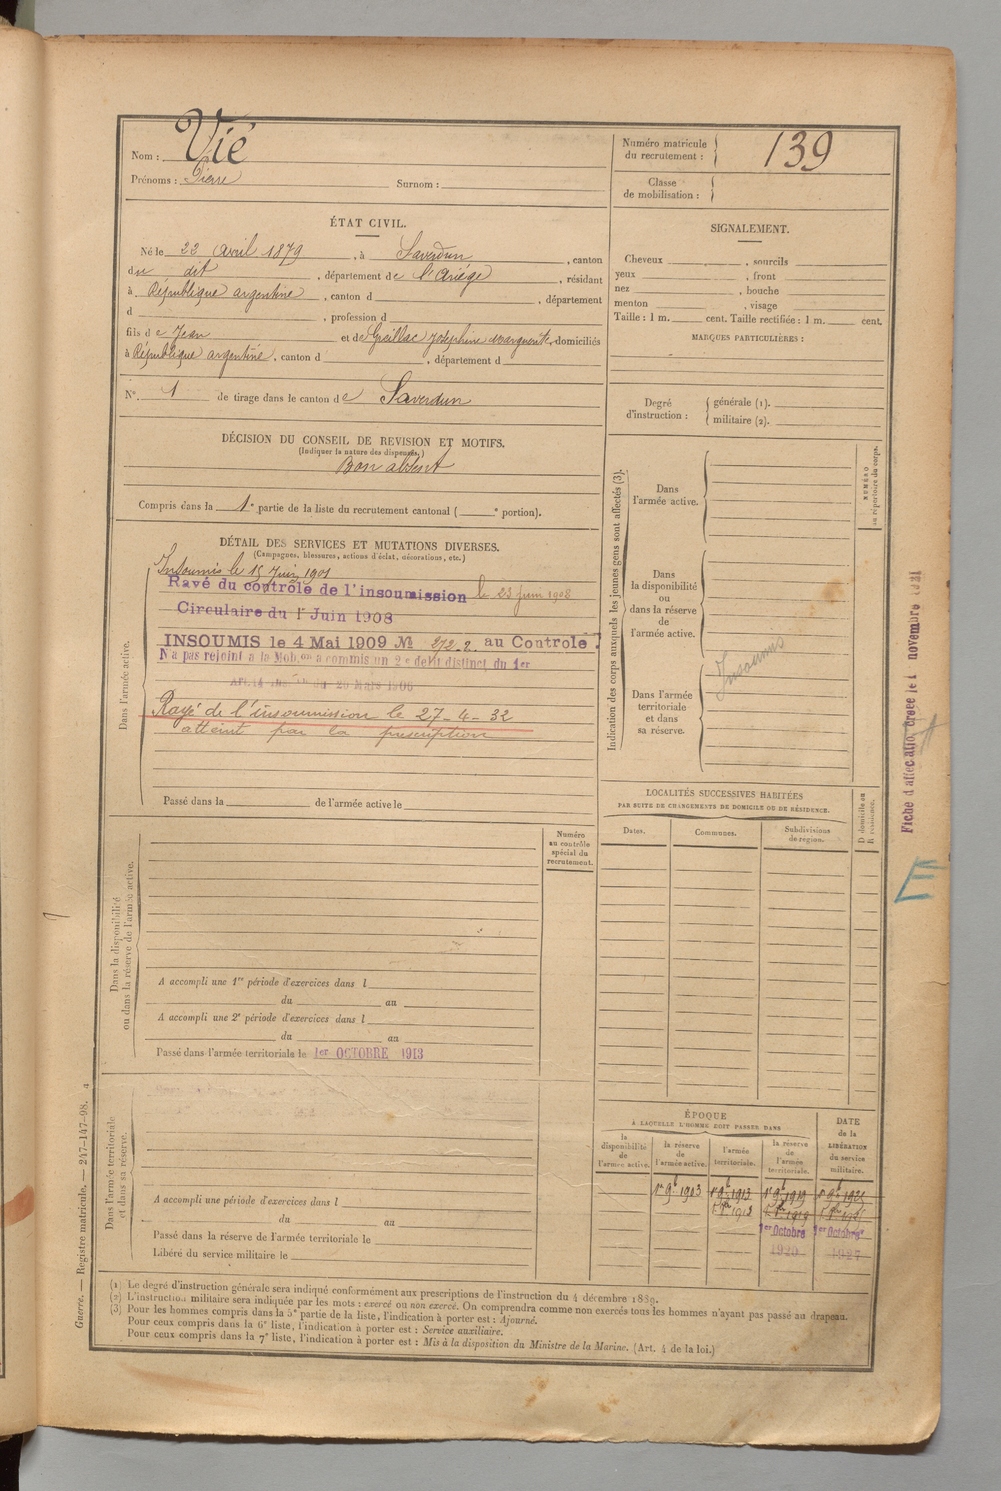 Nom : Vié
Prénoms : Pierre Surnom :
Numéro matricule du recrutement : 139
Classe de mobilisation :
ÉTAT CIVIL.
Né le 23 Avril 1879, à Saverdun, canton
du dit, département de l'Ariège, résidant
à République argentine, canton d , département
d , profession d
fils de Jean et de Joséphine Marguerite, domiciliés
à République argentine, canton d , département d
N° 1 de tirage dans le canton de Saverdun
DÉCISION DU CONSEIL DE REVISION ET MOTIFS.
(Indiquer la nature des dispenses.)
Bon absent
Compris dans la 1e partie de la liste du recrutement cantonal ( e portion).
DÉTAIL DES SERVICES ET MUTATIONS DIVERSES.
(Campagnes, blessures, actions d'éclat, décorations, etc.)
Dans l'armée active.
Insoumis le 15 Juin 1901
Rayé du contrôle de l'insoumission le 23 juin 1908
Circulaire du 1r Juin 1908
INSOUMIS le 4 Mai 1909 No 272-2 au Controle
N'a pas rejoint à la Mobon a commis un 2e délit distinct du 1er
Rayé de l'insoumission le 27-4-32
atteint par la prescription
Passé dans la de l'armée active le
Dans la disponibilité
ou dans la réserve de l'armée active.
Numéro
au contrôle
spécial du
recrutement.
A accompli une 1re période d'exercices dans l
du au
A accompli une 2e période d'exercices dans l
du au
Passé dans l'armée territoriale le 1er OCTOBRE 1913
Dans l'armée territoriale
et dans sa réserve.
A accompli une période d'exercices dans l
du au
Passé dans la réserve de l'armée territoriale le
Libéré du service militaire le
SIGNALEMENT.
Cheveux , sourcils
yeux , front
nez , bouche
menton , visage
Taille : 1 m. cent. Taille rectifiée : 1 m. cent.
MARQUES PARTICULIÈRES :
Degré d'instruction :
générale (1).
militaire (2).
Indication des corps auxquels les jeunes gens sont affectés (3).
NUMÉRO
au répertoire du corps.
Dans
l'armée active.
Dans
la disponibilité
ou
dans la réserve
de
l'armée active.
Insoumis
Dans l'armée
territoriale
et dans
sa réserve.
LOCALITÉS SUCCESSIVES HABITÉES
PAR SUITE DE CHANGEMENTS DE DOMICILE OU DE RÉSIDENCE.
Dates. Communes. Subdivisions de région.
D domicile ou
R résidence.
ÉPOQUE
À LAQUELLE L'HOMME DOIT PASSER DANS
la disponibilité de l'armée active.
la réserve de l'armée active.
l'armée territoriale.
la réserve de l'armée territoriale.
DATE de la LIBÉRATION du service militaire.
1er Octobre 1er Octobre
1920 1927
Fiche d'affectation créée le 1 novembre 1921
E
Guerre. — Registre matricule. — 247-147-98. 4
(1) Le degré d'instruction générale sera indiqué conformément aux prescriptions de l'instruction du 4 décembre 1889.
(2) L'instruction militaire sera indiquée par les mots : exercé ou non exercé. On comprendra comme non exercés tous les hommes n'ayant pas passé au drapeau.
(3) Pour les hommes compris dans la 5e partie de la liste, l'indication à porter est : Ajourné.
Pour ceux compris dans la 6e liste, l'indication à porter est : Service auxiliaire.
Pour ceux compris dans la 7e liste, l'indication à porter est : Mis à la disposition du Ministre de la Marine. (Art. 4 de la loi.)